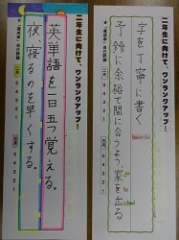 二年生に向けて、ワンランクアップ!
字を丁寧に書く
予鈴に余裕で間に合うよう家を出る
二年生に向けて、ワンランクアップ!
英単語を一日五つ覚える。
夜寝るのを早くする。